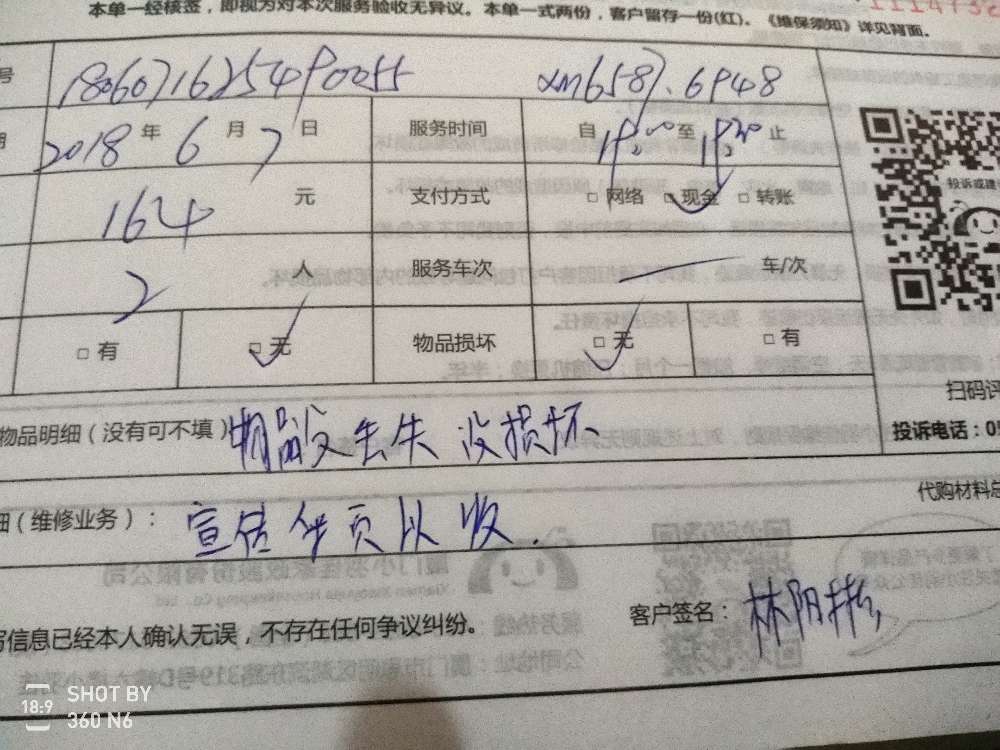 本单一经核签，即视为对本次服务验收无异议。本单一式两份，客户留存一份(红)。《维保须知》详见背面。
号 1806071625490055 xm6587.6948
期 2018年6月7日 服务时间 自 至 止
164 元 支付方式 □ 网络 □ 现金 □ 转账
2 人 服务车次 一 车/次
□ 有 □ 无 物品损坏 □ 无 □ 有
投诉或建
扫码评
物品明细（没有可不填） 物品没丢失 没损坏
投诉电话：05
代购材料总
细（维修业务）： 宣传单页以收.
写信息已经本人确认无误，不存在任何争议纠纷。 客户签名：林阴彬
SHOT BY
18:9
360 N6